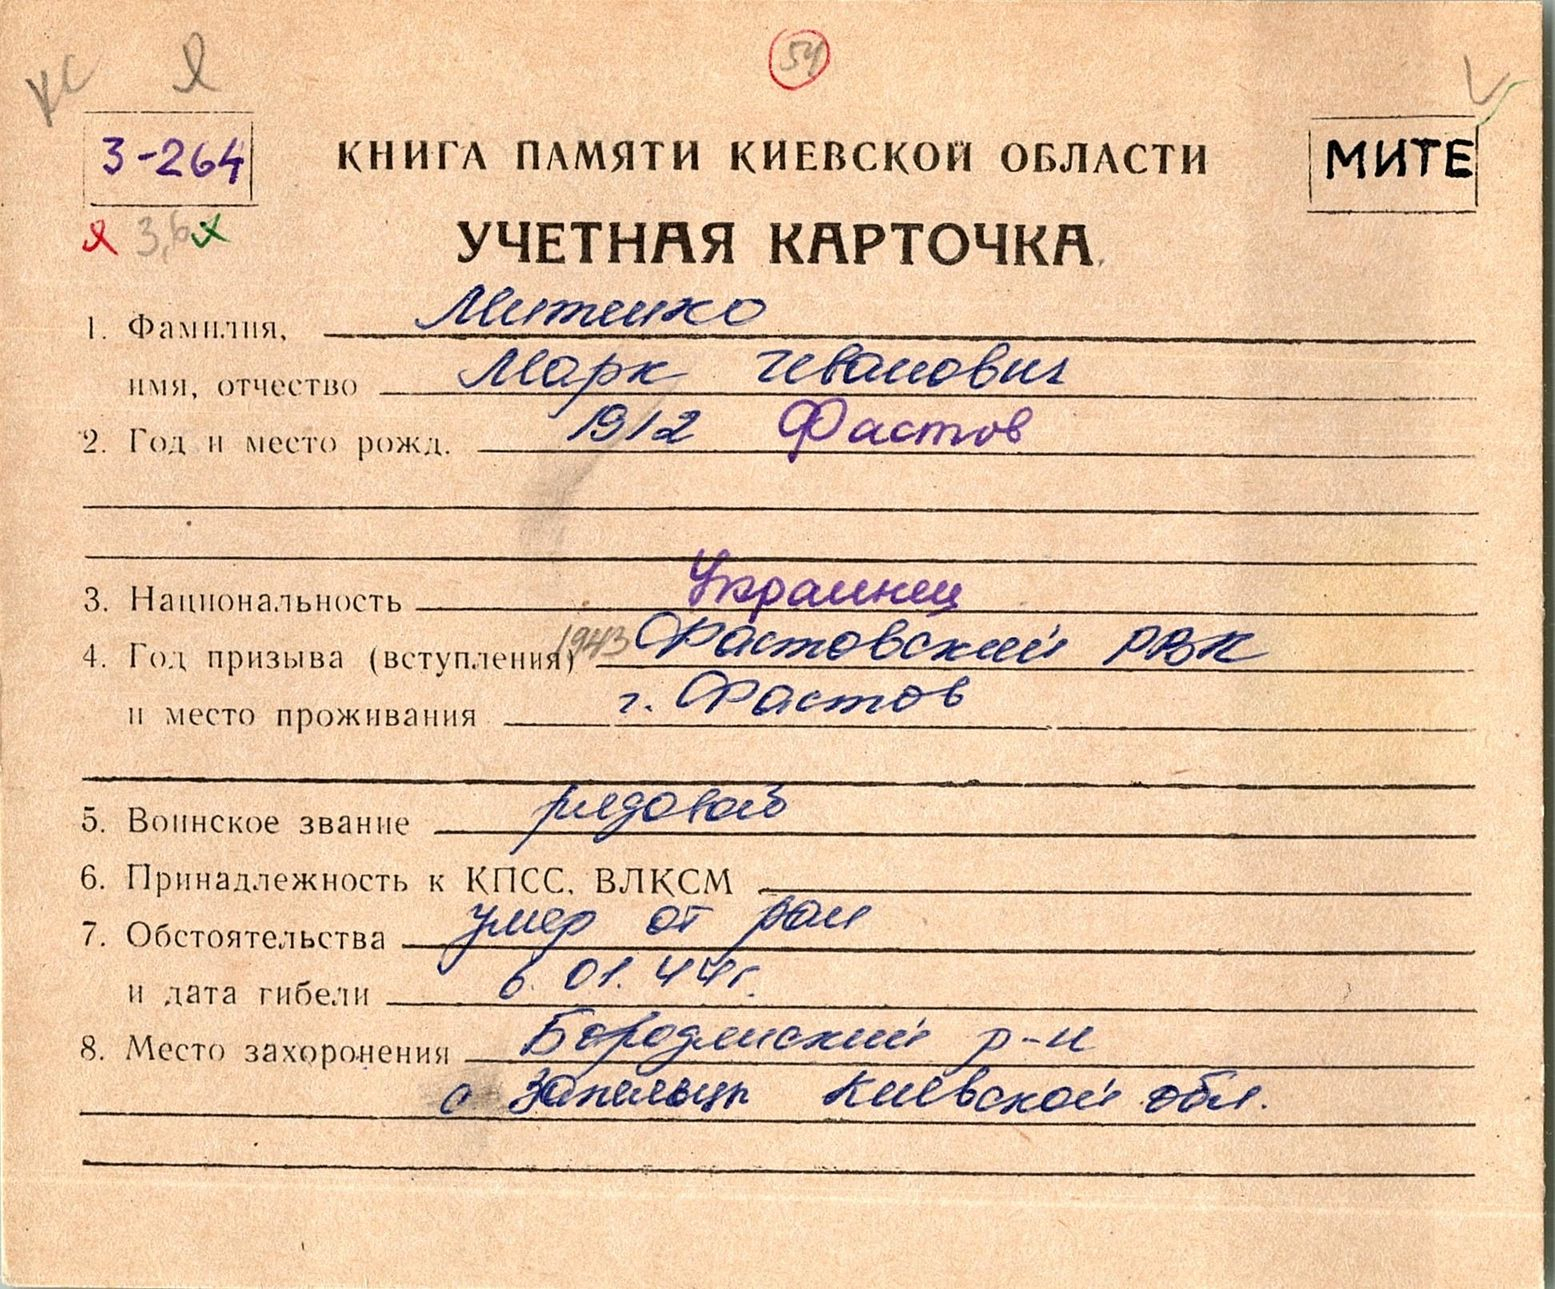 КС
54
3-264
КНИГА ПАМЯТИ КИЕВСКОЙ ОБЛАСТИ
МИТЕ
3,6
УЧЕТНАЯ КАРТОЧКА
1. Фамилия, Митенко
имя, отчество Марк Иванович
2. Год и место рожд. 1912 Фастов
3. Национальность Украинец
4. Год призыва (вступления) 1943 Фастовский РВК
и место проживания г. Фастов
5. Воинское звание рядовой
6. Принадлежность к КПСС, ВЛКСМ
7. Обстоятельства умер от ран
и дата гибели 6.01.44г.
8. Место захоронения Бородянский р-н
с Киевской обл.